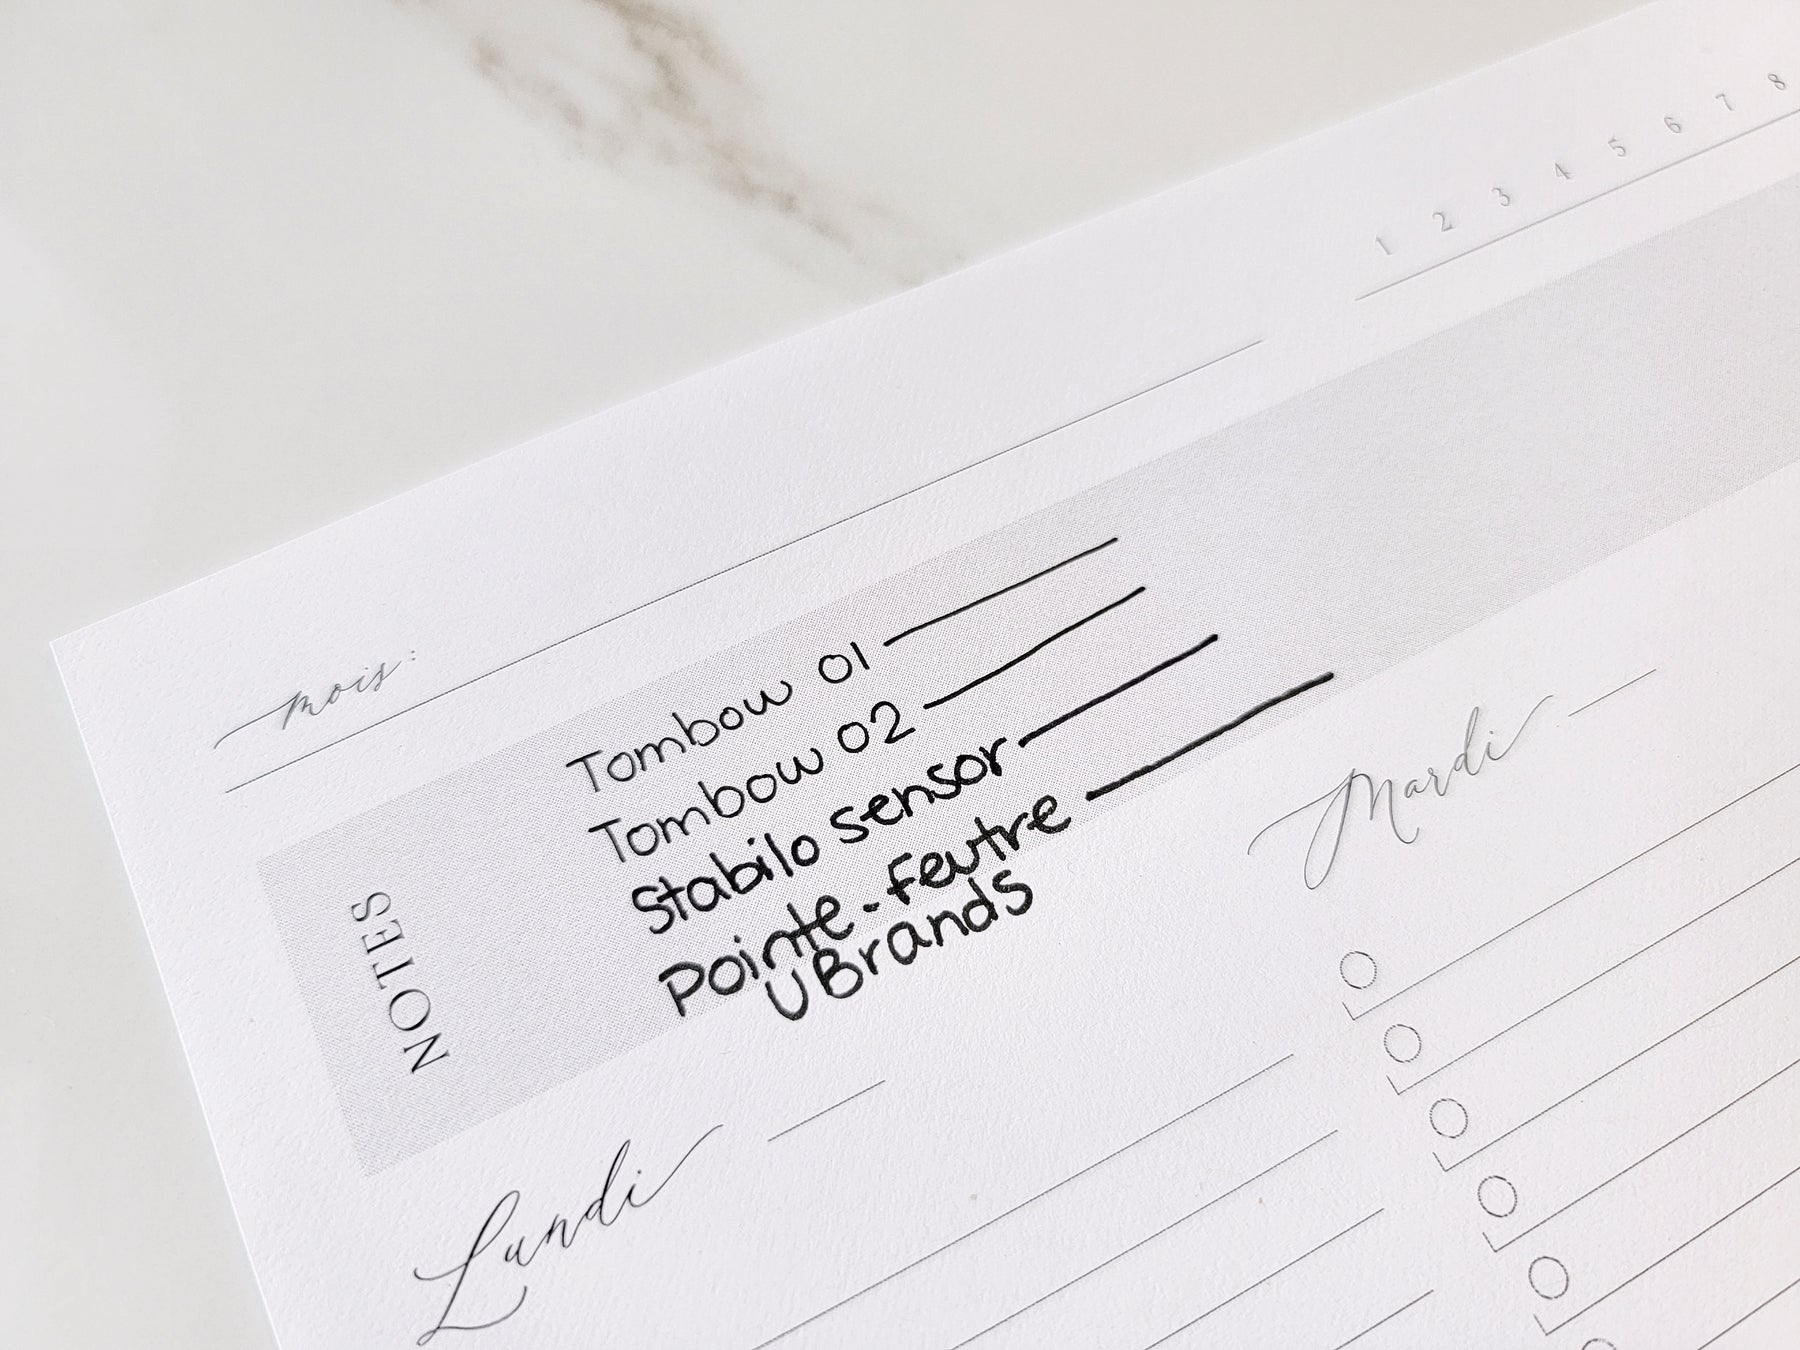 1 2 3 4 5 6 7 8
mois:
NOTES
Tombow 01
Tombow 02
Stabilo sensor
Pointe-feutre
UBrands
Lundi
Mardi